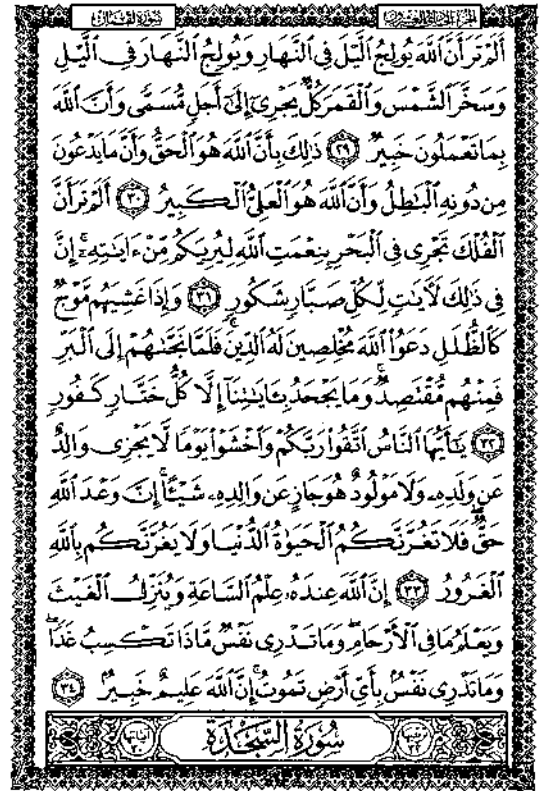 سورة لقمان الجزء الحادي والعشرون
أَلَمْ تَرَ أَنَّ ٱللَّهَ يُولِجُ ٱلَّيْلَ فِى ٱلنَّهَارِ وَيُولِجُ ٱلنَّهَارَ فِى ٱلَّيْلِ
وَسَخَّرَ ٱلشَّمْسَ وَٱلْقَمَرَ كُلٌّ يَجْرِىٓ إِلَىٰٓ أَجَلٍ مُّسَمًّى وَأَنَّ ٱللَّهَ
بِمَا تَعْمَلُونَ خَبِيرٌ ٢٩ ذَٰلِكَ بِأَنَّ ٱللَّهَ هُوَ ٱلْحَقُّ وَأَنَّ مَا يَدْعُونَ
مِن دُونِهِ ٱلْبَٰطِلُ وَأَنَّ ٱللَّهَ هُوَ ٱلْعَلِىُّ ٱلْكَبِيرُ ٣٠ أَلَمْ تَرَ أَنَّ
ٱلْفُلْكَ تَجْرِى فِى ٱلْبَحْرِ بِنِعْمَتِ ٱللَّهِ لِيُرِيَكُم مِّنْ ءَايَٰتِهِۦٓ ۚ إِنَّ
فِى ذَٰلِكَ لَءَايَٰتٍ لِّكُلِّ صَبَّارٍ شَكُورٍ ٣١ وَإِذَا غَشِيَهُم مَّوْجٌ
كَٱلظُّلَلِ دَعَوُا۟ ٱللَّهَ مُخْلِصِينَ لَهُ ٱلدِّينَ فَلَمَّا نَجَّىٰهُمْ إِلَى ٱلْبَرِّ
فَمِنْهُم مُّقْتَصِدٌ ۚ وَمَا يَجْحَدُ بِـَٔايَٰتِنَآ إِلَّا كُلُّ خَتَّارٍ كَفُورٍ
٣٢ يَٰٓأَيُّهَا ٱلنَّاسُ ٱتَّقُوا۟ رَبَّكُمْ وَٱخْشَوْا۟ يَوْمًا لَّا يَجْزِى وَالِدٌ
عَن وَلَدِهِۦ وَلَا مَوْلُودٌ هُوَ جَازٍ عَن وَالِدِهِۦ شَيْـًٔا ۚ إِنَّ وَعْدَ ٱللَّهِ
حَقٌّ ۖ فَلَا تَغُرَّنَّكُمُ ٱلْحَيَوٰةُ ٱلدُّنْيَا وَلَا يَغُرَّنَّكُم بِٱللَّهِ
ٱلْغَرُورُ ٣٣ إِنَّ ٱللَّهَ عِندَهُۥ عِلْمُ ٱلسَّاعَةِ وَيُنَزِّلُ ٱلْغَيْثَ
وَيَعْلَمُ مَا فِى ٱلْأَرْحَامِ ۖ وَمَا تَدْرِى نَفْسٌ مَّاذَا تَكْسِبُ غَدًا ۖ
وَمَا تَدْرِى نَفْسٌۢ بِأَىِّ أَرْضٍ تَمُوتُ ۚ إِنَّ ٱللَّهَ عَلِيمٌ خَبِيرٌۢ ٣٤
سُورَةُ السَّجْدَةِ